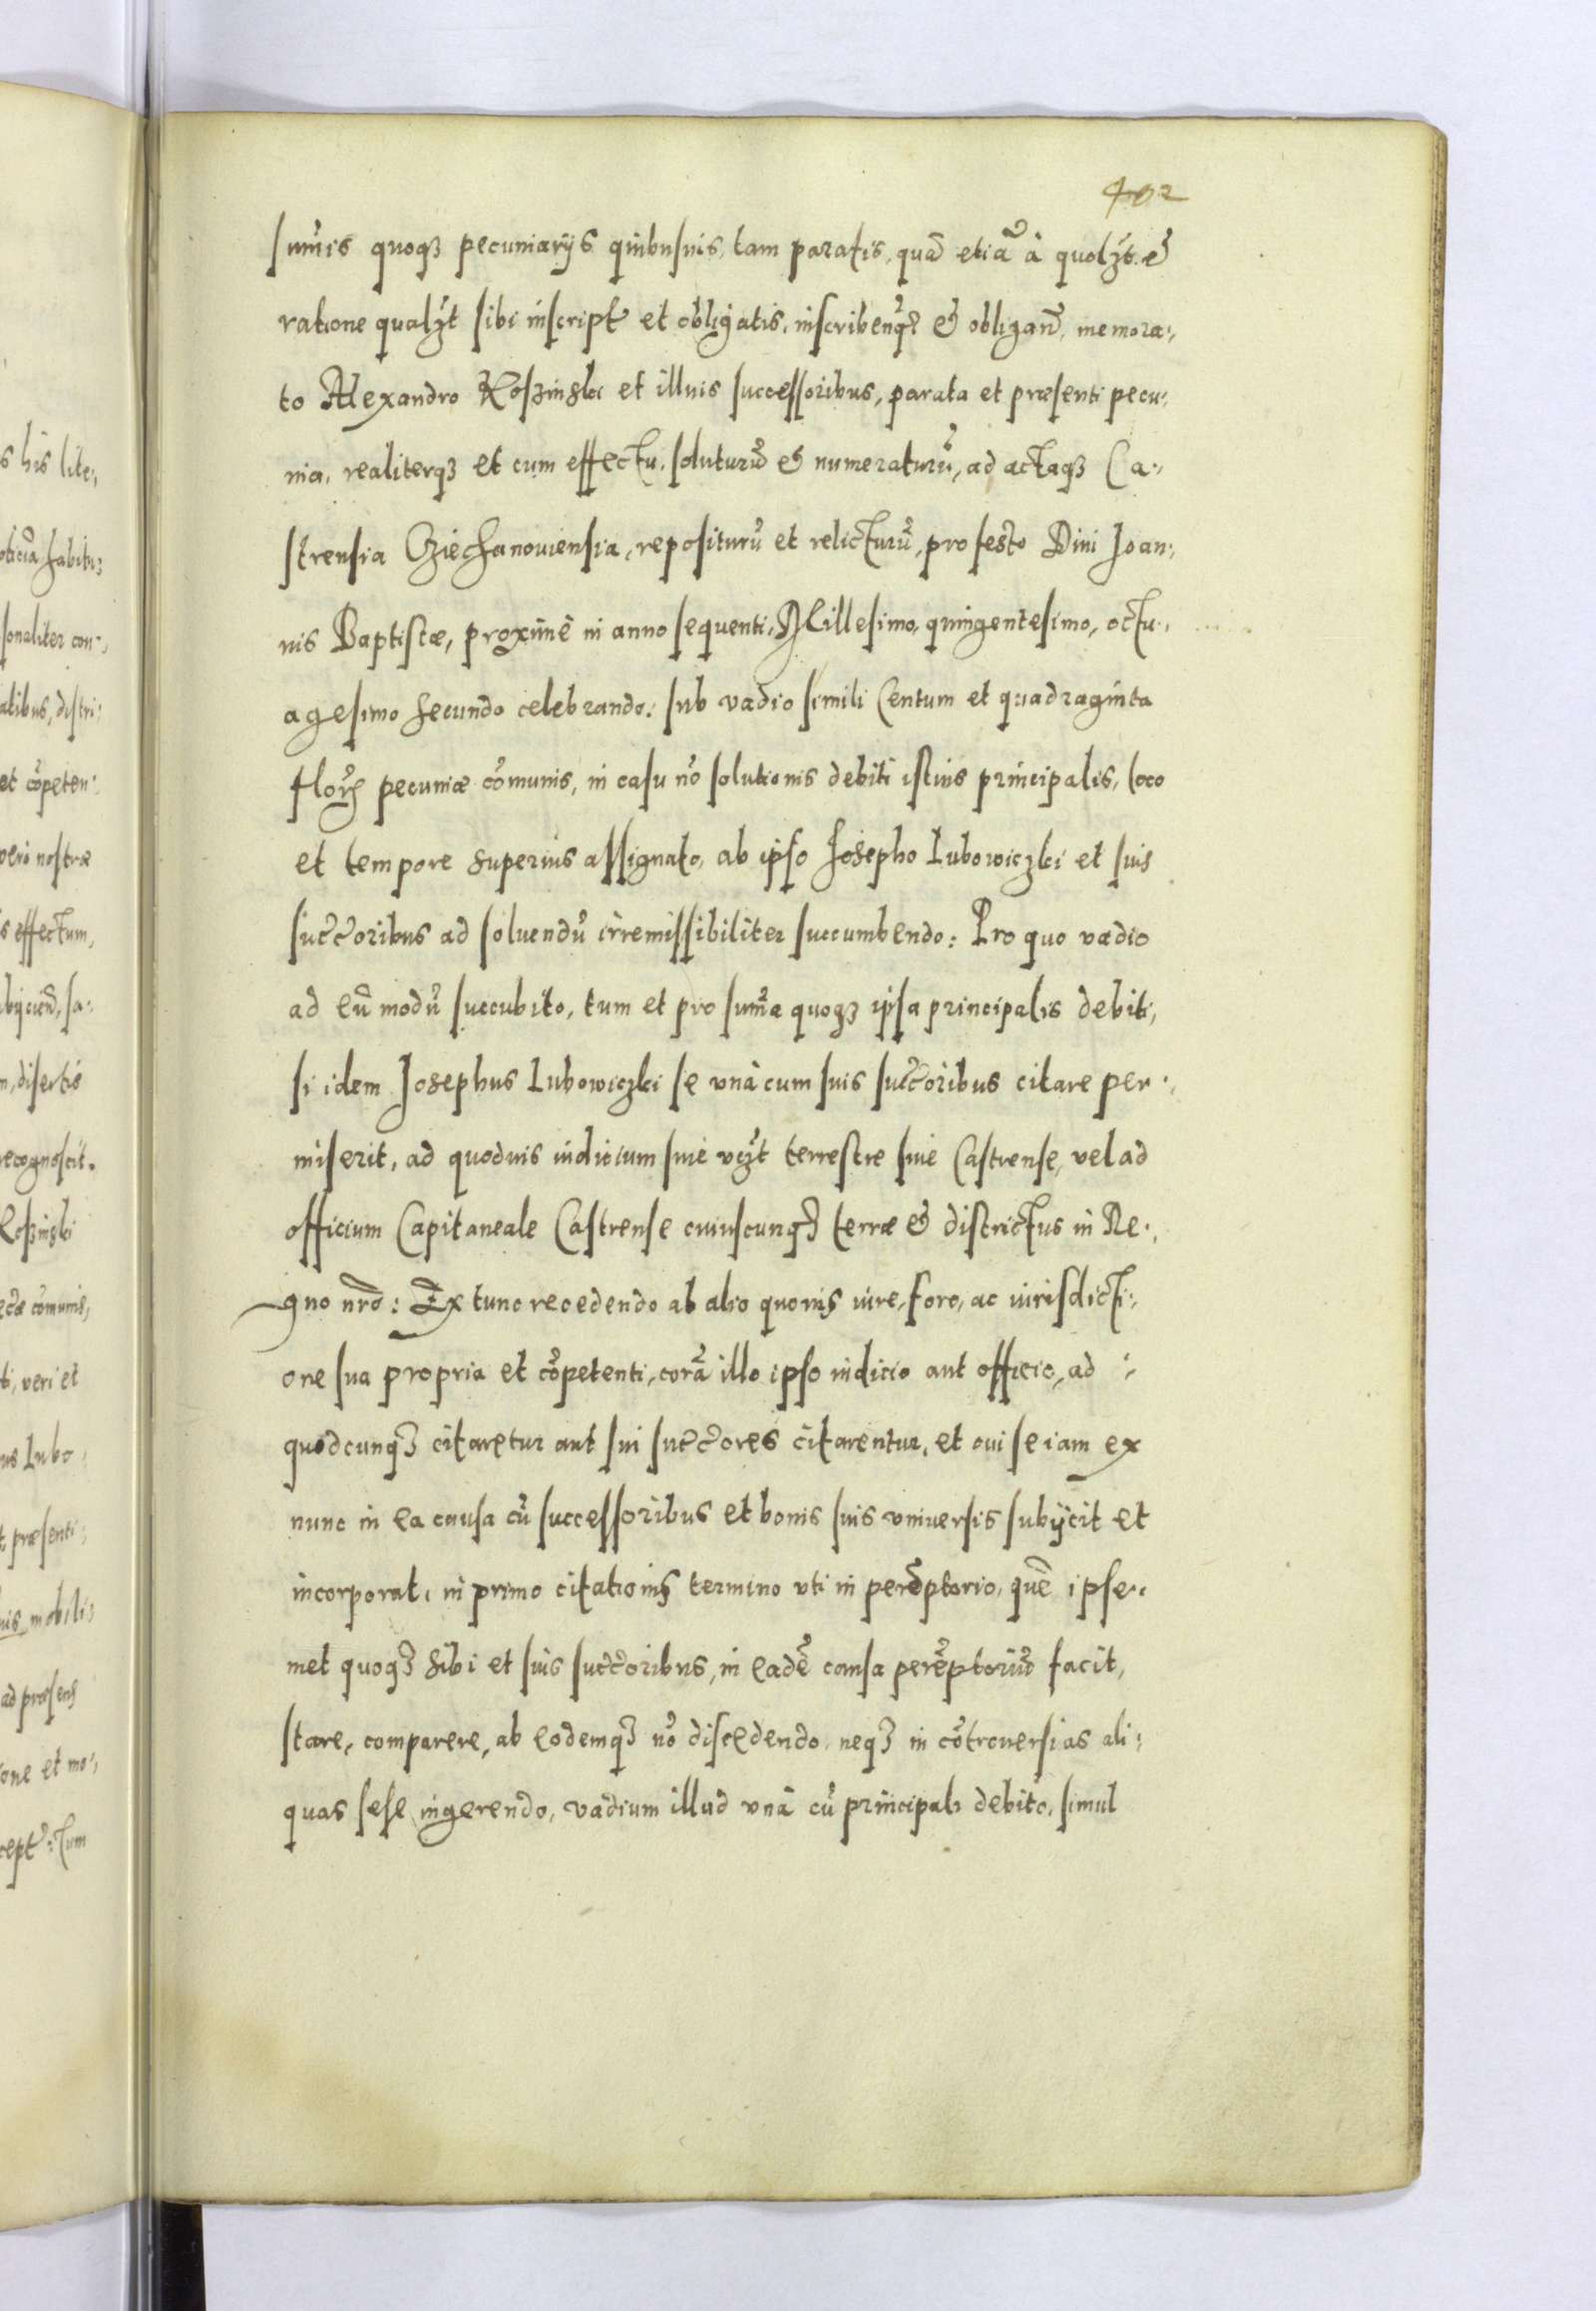 402
sum̄is quoqȝ pecuniarijs quibusuis, tam paratis, quā etiā à quolȝt. et
ratione qualȝt sibi inscript̃ et obligatis, inscribenq̃ȝ et obligan̄d, memora:,
to Alexandro Koszinski et illius successoribus, parata et præsenti pecu:,
nia, realiterqȝ et cum effectu, soluturū et numeraturū, ad actaqȝ Ca:,
strensia Cziechanouiensia, repositurū et relicturū, pro festo Diui Joan:,
nis Baptistæ, proximè in anno sequenti, Millesimo, quingentesimo, octu:,
agesimo secundo celebrando: sub vadio simili Centum et quadraginta
floꝝ pecuniæ cōmunis, in casu nō solutionis debiti istius principalis, loco
et tempore superius assignato, ab ipso Josepho Lubowiczki et suis
succ̄oribus ad soluendū irremissibiliter succumbendo: Pro quo vadio
ad eū modū succubito, tum et pro sum̄a quoqȝ ipsa principalis debiti,
si idem Josephus Lubowiczki se vnà cum suis succ̄oribus citare per:,
miserit, ad quoduis iudicium siue vȝt terrestre siue Castrense, vel ad
officium Capitaneale Castrense cuiuscunqȝ terræ et districtus in Re:,
gno nr̄o: Ex tunc recedendo ab alio quouis iure, foro, ac iurisdicti:,
one sua propria et cōpetenti, corā illo ipso iudicio aut officio, ad :,
quodcunqȝ citaretur aut sui succ̄ores citarentur, et cui se iam ex
nunc in ea causa cū successoribus et bonis suis vniuersis subijcit et
incorporat, in primo citationis termino vti in perēptorio, quē ipse:,
met quoqȝ sibi et suis succ̄oribus, in eadē causa perēptoriū facit,
stare, comparere, ab eodemqȝ nō discedendo, neqȝ in cōtrouersias ali:,
quas sese ingerendo, vadium illud vnà cū principali debito, simul
s his lite:,
habitis
sonaliter con:,
alibus, distri:
et cōpeten:
nostræ
s effectum,
disertis
recognoscit.
Koszinski
cōmunis,
ti, veri et
us Lubo:,
t præsenti:,
uis mobili:
ad præsens
ione et mo:,
cept̃: Tum